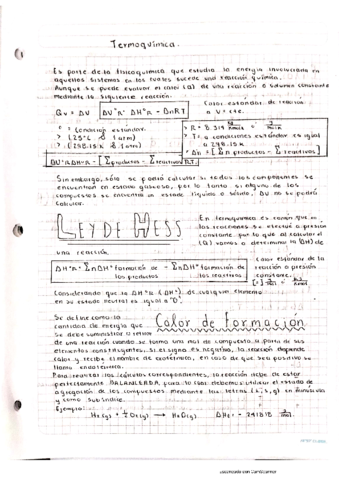 Termoquímica.
Es parte de la fisicoquímica que estudia la energía involucrada en
aquellos sistemas en los cuales sucede una reacción química.
Aunque se puede evaluar el calor (Q) de una reacción a volumen constante
Mediante la siguiente reacción.
Calor estándar de reacción
a V = cte.
Qv = ΔU
ΔU°R = ΔH°R - ΔnRT
° = Condición estándar.
> (25°C y 1 atm)
> (298.15 K y 1 atm)
> R = 8.314
> T: a condiciones estándar es igual
a 298.15 K
> Δn = [Σn productos - Σ reactivos]
ΔU°R = ΔH°R - [Σ productos - Σ reactivos] RT.
Sin embargo, sólo se podrá calcular si todos los componentes se
encuentran en estado gaseoso, por lo tanto si alguno de los
compuestos se encuentra en estado líquido o sólido, ΔU no se podrá
calcular.
LEY DE HESS
En termoquímica es común que
las reacciones se efectúen a presión
constante, por lo que al calcular el
(Q) vamos a determinar la (ΔH) de
una reacción.
ΔH°R = ΣnΔH° formación de los productos - ΣnΔH° formación de los reactivos
Calor estándar de la
reacción a presión
constante.
Considerando que la ΔH°R (ΔH°f) de cualquier elemento
en su estado neutral es igual a "0".
Calor de formación
Se define como la
cantidad de energía que
se debe suministrar o retirar
de una reacción cuando se forma una mol de compuesto a partir de sus
elementos constituyentes. Si el signo es negativo, la reacción desprende
calor y recibe el nombre de exotérmica, en caso de que sea positivo se
llama endotérmica.
Para realizar los cálculos correspondientes, la reacción debe de estar
perfectamente BALANCEADA, para lo cual debemos utilizar el estado de
agregación de los compuestos mediante las letras (l, s, g) en minúsculas
y como subíndice.
Ejemplo:
H₂(g) + ½O₂(g) → H₂O(g)
ΔHf = -241818 J/mol.